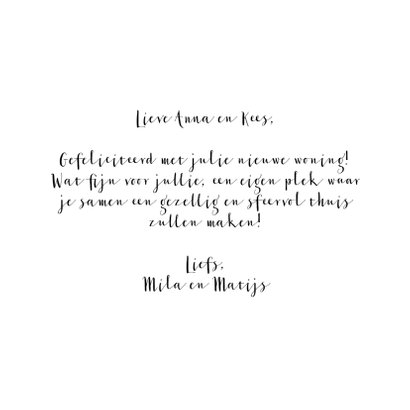 Lieve Anna en Kees,
Gefeliciteerd met julie nieuwe woning!
Wat fijn voor jullie, een eigen plek waar
je samen een gezellig en sfeervol thuis
zullen maken!
Liefs,
Mila en Matijs